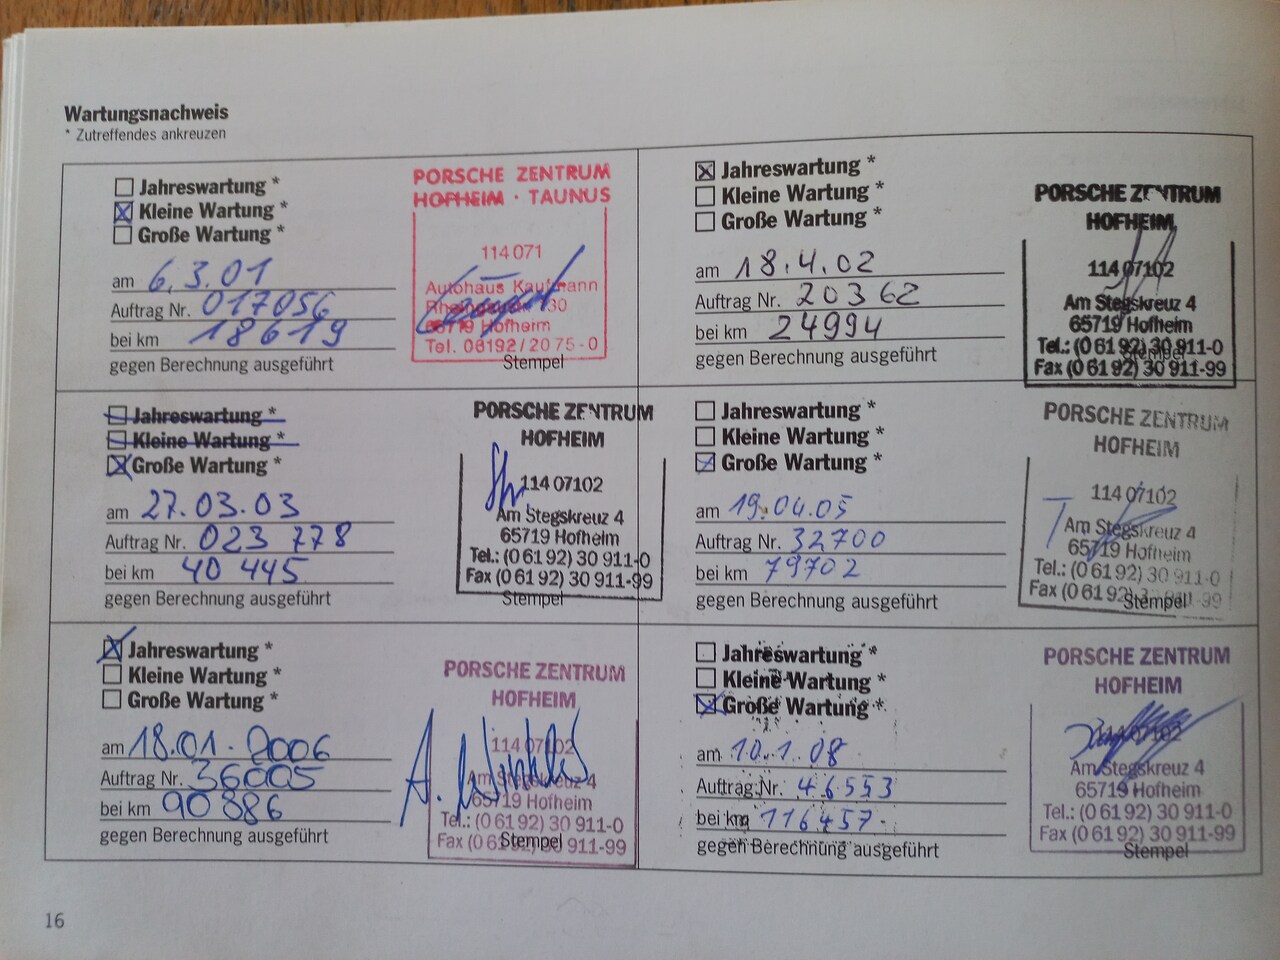 Wartungsnachweis
* Zutreffendes ankreuzen
Jahreswartung *
Kleine Wartung *
Große Wartung *
am 6.3.01
Auftrag Nr. 017056
bei km 18619
gegen Berechnung ausgeführt
PORSCHE ZENTRUM
HOFHEIM · TAUNUS
114 071
Autohaus Kaufmann
30
65719 Hofheim
Tel. 06192/20 75-0
Stempel
Jahreswartung *
Kleine Wartung *
Große Wartung *
am 18.4.02
Auftrag Nr. 20362
bei km 24994
gegen Berechnung ausgeführt
PORSCHE ZENTRUM
HOFHEIM
114 07102
Am Stegskreuz 4
65719 Hofheim
Tel.: (0 61 92) 30 911-0
Stempel
Fax (0 61 92) 30 911-99
Jahreswartung *
Kleine Wartung *
Große Wartung *
am 27.03.03
Auftrag Nr. 023 778
bei km 40 445
gegen Berechnung ausgeführt
PORSCHE ZENTRUM
HOFHEIM
114 07102
Am Stegskreuz 4
65719 Hofheim
Tel.: (0 61 92) 30 911-0
Fax (0 61 92) 30 911-99
Stempel
Jahreswartung *
Kleine Wartung *
Große Wartung *
am 19.04.05
Auftrag Nr. 32700
bei km 79702
gegen Berechnung ausgeführt
PORSCHE ZENTRUM
HOFHEIM
114 07102
Am Stegskreuz 4
65719 Hofheim
Tel.: (0 61 92) 30 911-0
Fax (0 61 92) 30 911-99
Stempel
Jahreswartung *
Kleine Wartung *
Große Wartung *
am 18.01.2006
Auftrag Nr. 36005
bei km 90886
gegen Berechnung ausgeführt
PORSCHE ZENTRUM
HOFHEIM
114 07102
A. Winkler
Am Stegskreuz 4
65719 Hofheim
Tel.: (0 61 92) 30 911-0
Fax (0 61 92) 30 911-99
Stempel
Jahreswartung *
Kleine Wartung *
Große Wartung *
am 10.1.08
Auftrag Nr. 46553
bei km 116457
gegen Berechnung ausgeführt
PORSCHE ZENTRUM
HOFHEIM
114 07102
Am Stegskreuz 4
65719 Hofheim
Tel.: (0 61 92) 30 911-0
Fax (0 61 92) 30 911-99
Stempel
16